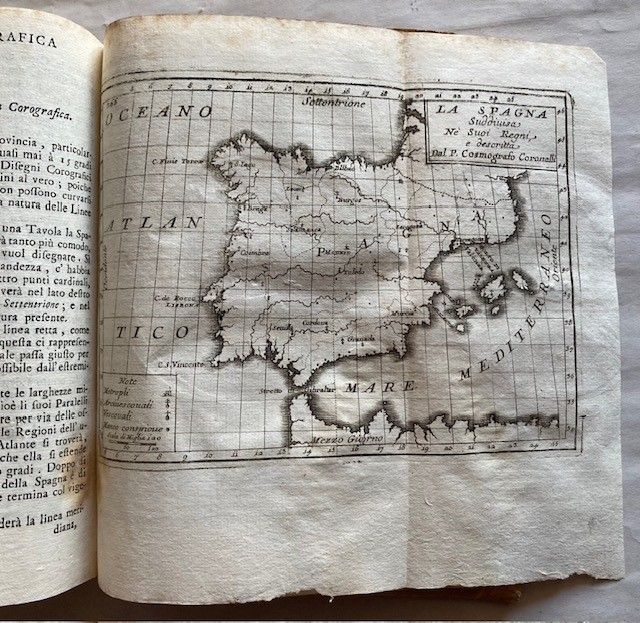 RAFICA
Corografica.
ovincia, particolar-
uali mai à 15 gradi
Disegni Corografici
ini al vero; poiche
on possono curvarsi
a natura delle Linee
una Tavola la Spa-
rà tanto più comodo,
vuol disegnare. Si
andezza, e habbia
ttro punti cardinali,
verà nel lato destro
Settentrione; e nel
ura presente.
linea retta, come
questa ci rappresen-
ale passa giusto per
ossibile dall'estremi-
te le larghezze mi-
ioè li suoi Paralelli
re per via delle os-
le Regioni dell' u-
Atlante si troverà,
che ella si estende
gradi. Doppo
della Spagna
e termina col vige-
derà la linea meri-
diana,
OCEANO
Settentrione
LA SPAGNA
Suddivisa
Ne Suoi Regni,
e descritta
Dal P. Cosmografo Coronelli
C. Finis Terræ
Bilbao
Burgos
Braga
Salamanca
ATLAN
Coimbra
S P A G N A
Toledo
C. de Rocca
LISBONA
TICO
Murcia
Cordova
Sevilla
Granada
C. S. Vincente
MEDITERRANEO
Oriente
Stretto Gibraltar
MARE
Mezzo Giorno
Note
Metropoli
Arciuescouati
Vescouati
Scala di Miglia 100